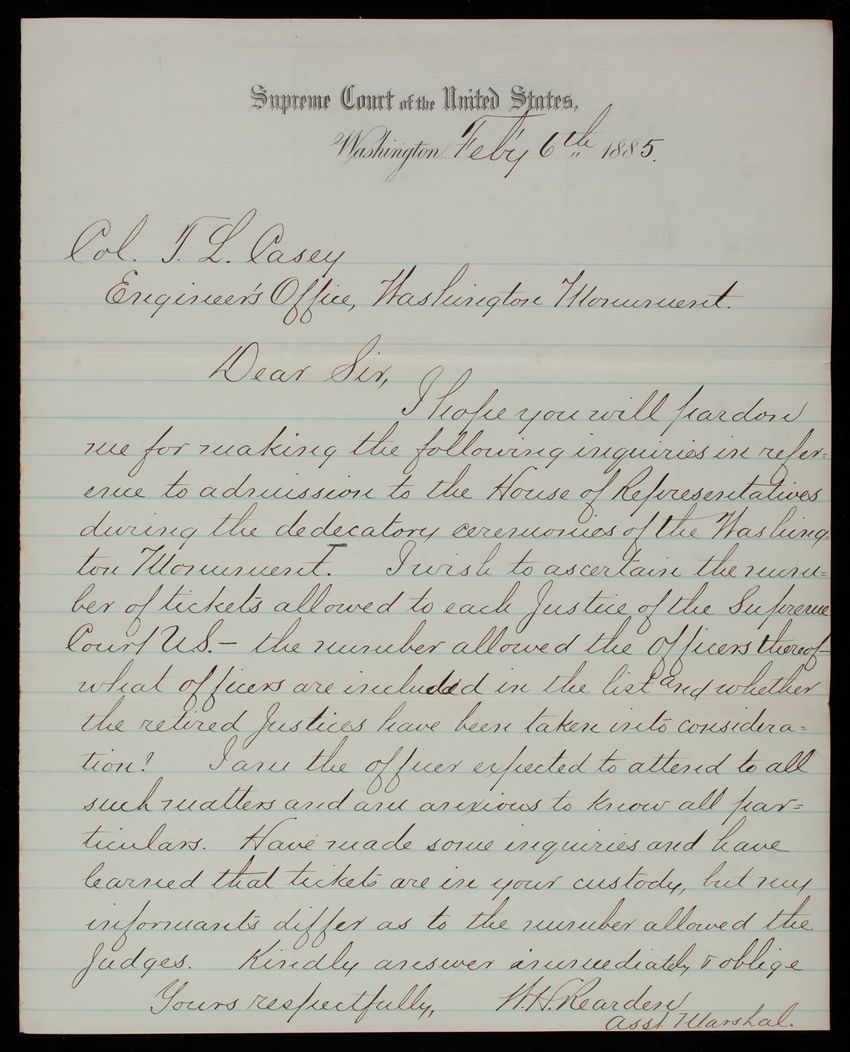 Supreme Court of the United States,
Washington Feb'y 6th 1885.
Col. T. L. Casey
Engineer's Office, Washington Monument.
Dear Sir,
I hope you will pardon
me for making the following inquiries in refer-
ence to admission to the House of Representatives
during the dedecatory ceremonies of the Washing-
ton Monument. I wish to ascertain the num-
ber of tickets allowed to each Justice of the Supreme
Court U.S. – the number allowed the Officers thereof –
what officers are included in the list and whether
the retired Justices have been taken into considera-
tion? I am the officer expected to attend to all
such matters and am anxious to know all par-
ticulars. Have made some inquiries and have
learned that tickets are in your custody, but my
informants differ as to the number allowed the
Judges. Kindly answer immediately & oblige
Yours respectfully, W. H. Rearden
Asst. Marshal.